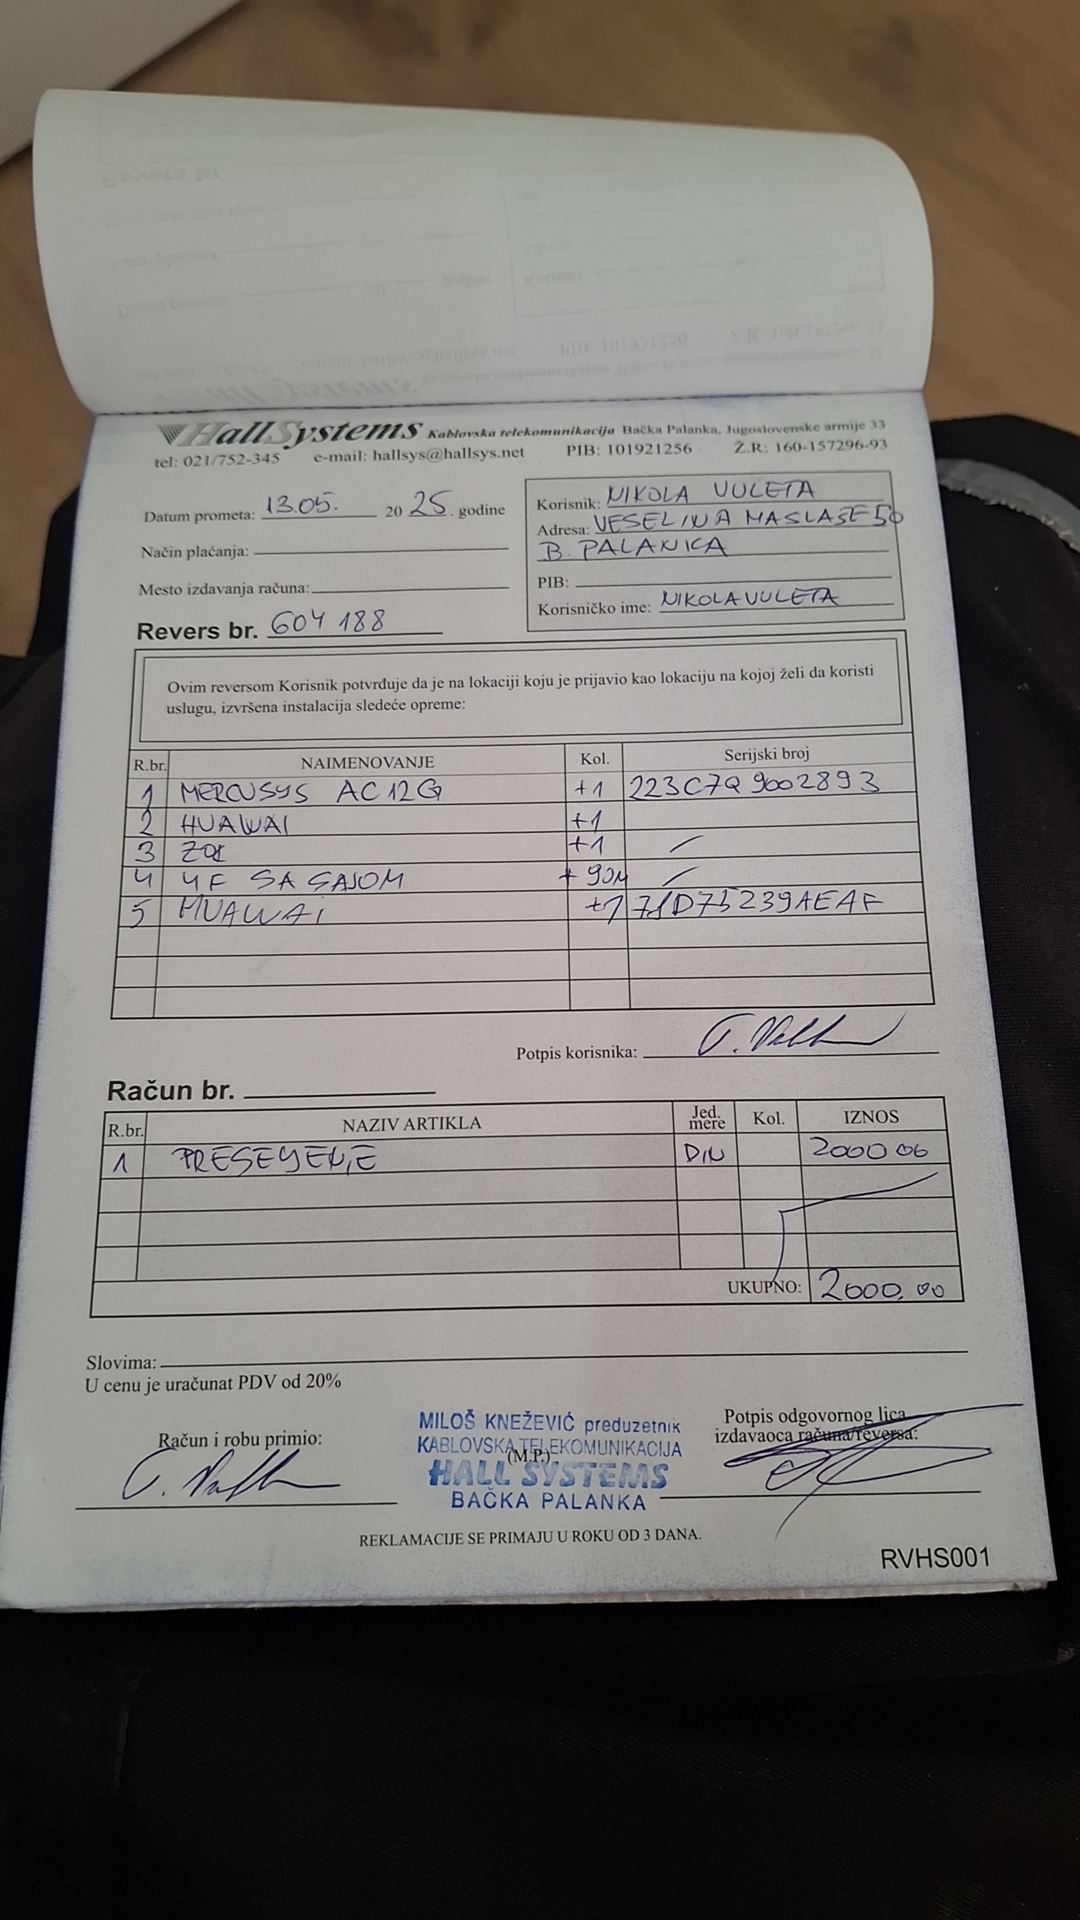 HallSystems Kablovska telekomunikacija Bačka Palanka, Jugoslovenske armije 33
tel: 021/752-345 e-mail: hallsys@hallsys.net PIB: 101921256 Ž.R: 160-157296-93
Datum prometa: 13.05. 20 25. godine
Način plaćanja:
Mesto izdavanja računa:
Revers br. 604 188
Korisnik: NIKOLA VULETA
Adresa: VESELINA MASLAŠE 50
B. PALANKA
PIB:
Korisničko ime: NIKOLAVULETA
Ovim reversom Korisnik potvrđuje da je na lokaciji koju je prijavio kao lokaciju na kojoj želi da koristi
uslugu, izvršena instalacija sledeće opreme:
R.br. NAIMENOVANJE Kol. Serijski broj
1 MERCUSYS AC12G +1 223C7Q9002893
2 HUAWAI +1
3 +1
4 4F SA SAJOM + 90M
5 HUAWAI +1 71D75239AEAF
Potpis korisnika:
Račun br.
R.br. NAZIV ARTIKLA Jed. mere Kol. IZNOS
1 PRESEYENJE DIN 2000 00
UKUPNO: 2000.00
Slovima:
U cenu je uračunat PDV od 20%
Račun i robu primio:
MILOŠ KNEŽEVIĆ preduzetnik
KABLOVSKA TELEKOMUNIKACIJA
(M.P.)
HALL SYSTEMS
BAČKA PALANKA
Potpis odgovornog lica
izdavaoca računa/reversa:
REKLAMACIJE SE PRIMAJU U ROKU OD 3 DANA.
RVHS001